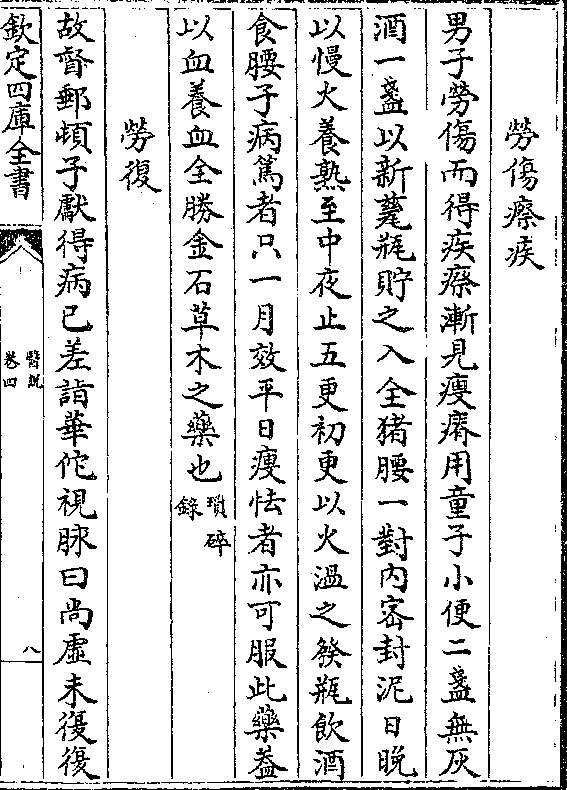 勞傷瘵疾
男子勞傷而得疾瘵漸見瘦瘠用童子小便二盞無灰
酒一盞以新甆瓶貯之入全猪腰一對内密封泥日晚
以慢火養熟至中夜止五更初更以火溫之發瓶飲酒
食腰子病篤者只一月效平日瘦怯者亦可服此藥葢
以血養血全勝金石草木之藥也瑣碎錄
勞復
故督郵頓子獻得病已差詣華佗視脉曰尚虛未復復
欽定四庫全書
醫說
卷四
八